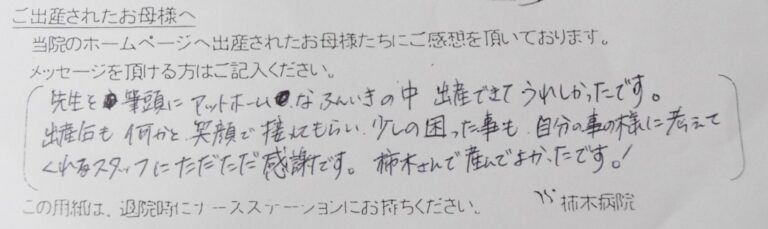 ご出産されたお母様へ
当院のホームページへ出産されたお母様たちにご感想を頂いております。
メッセージを頂ける方はご記入ください。
先生を筆頭にアットホームなふんいきの中 出産できてうれしかったです。
出産后も何かと笑顔で接してもらい 少しの困った事も 自分の事の様に考えて
くれるスタッフにただただ感謝です。 柿木さんで産んでよかったです!
この用紙は、退院時にナースステーションにお持ちください。 柿木病院